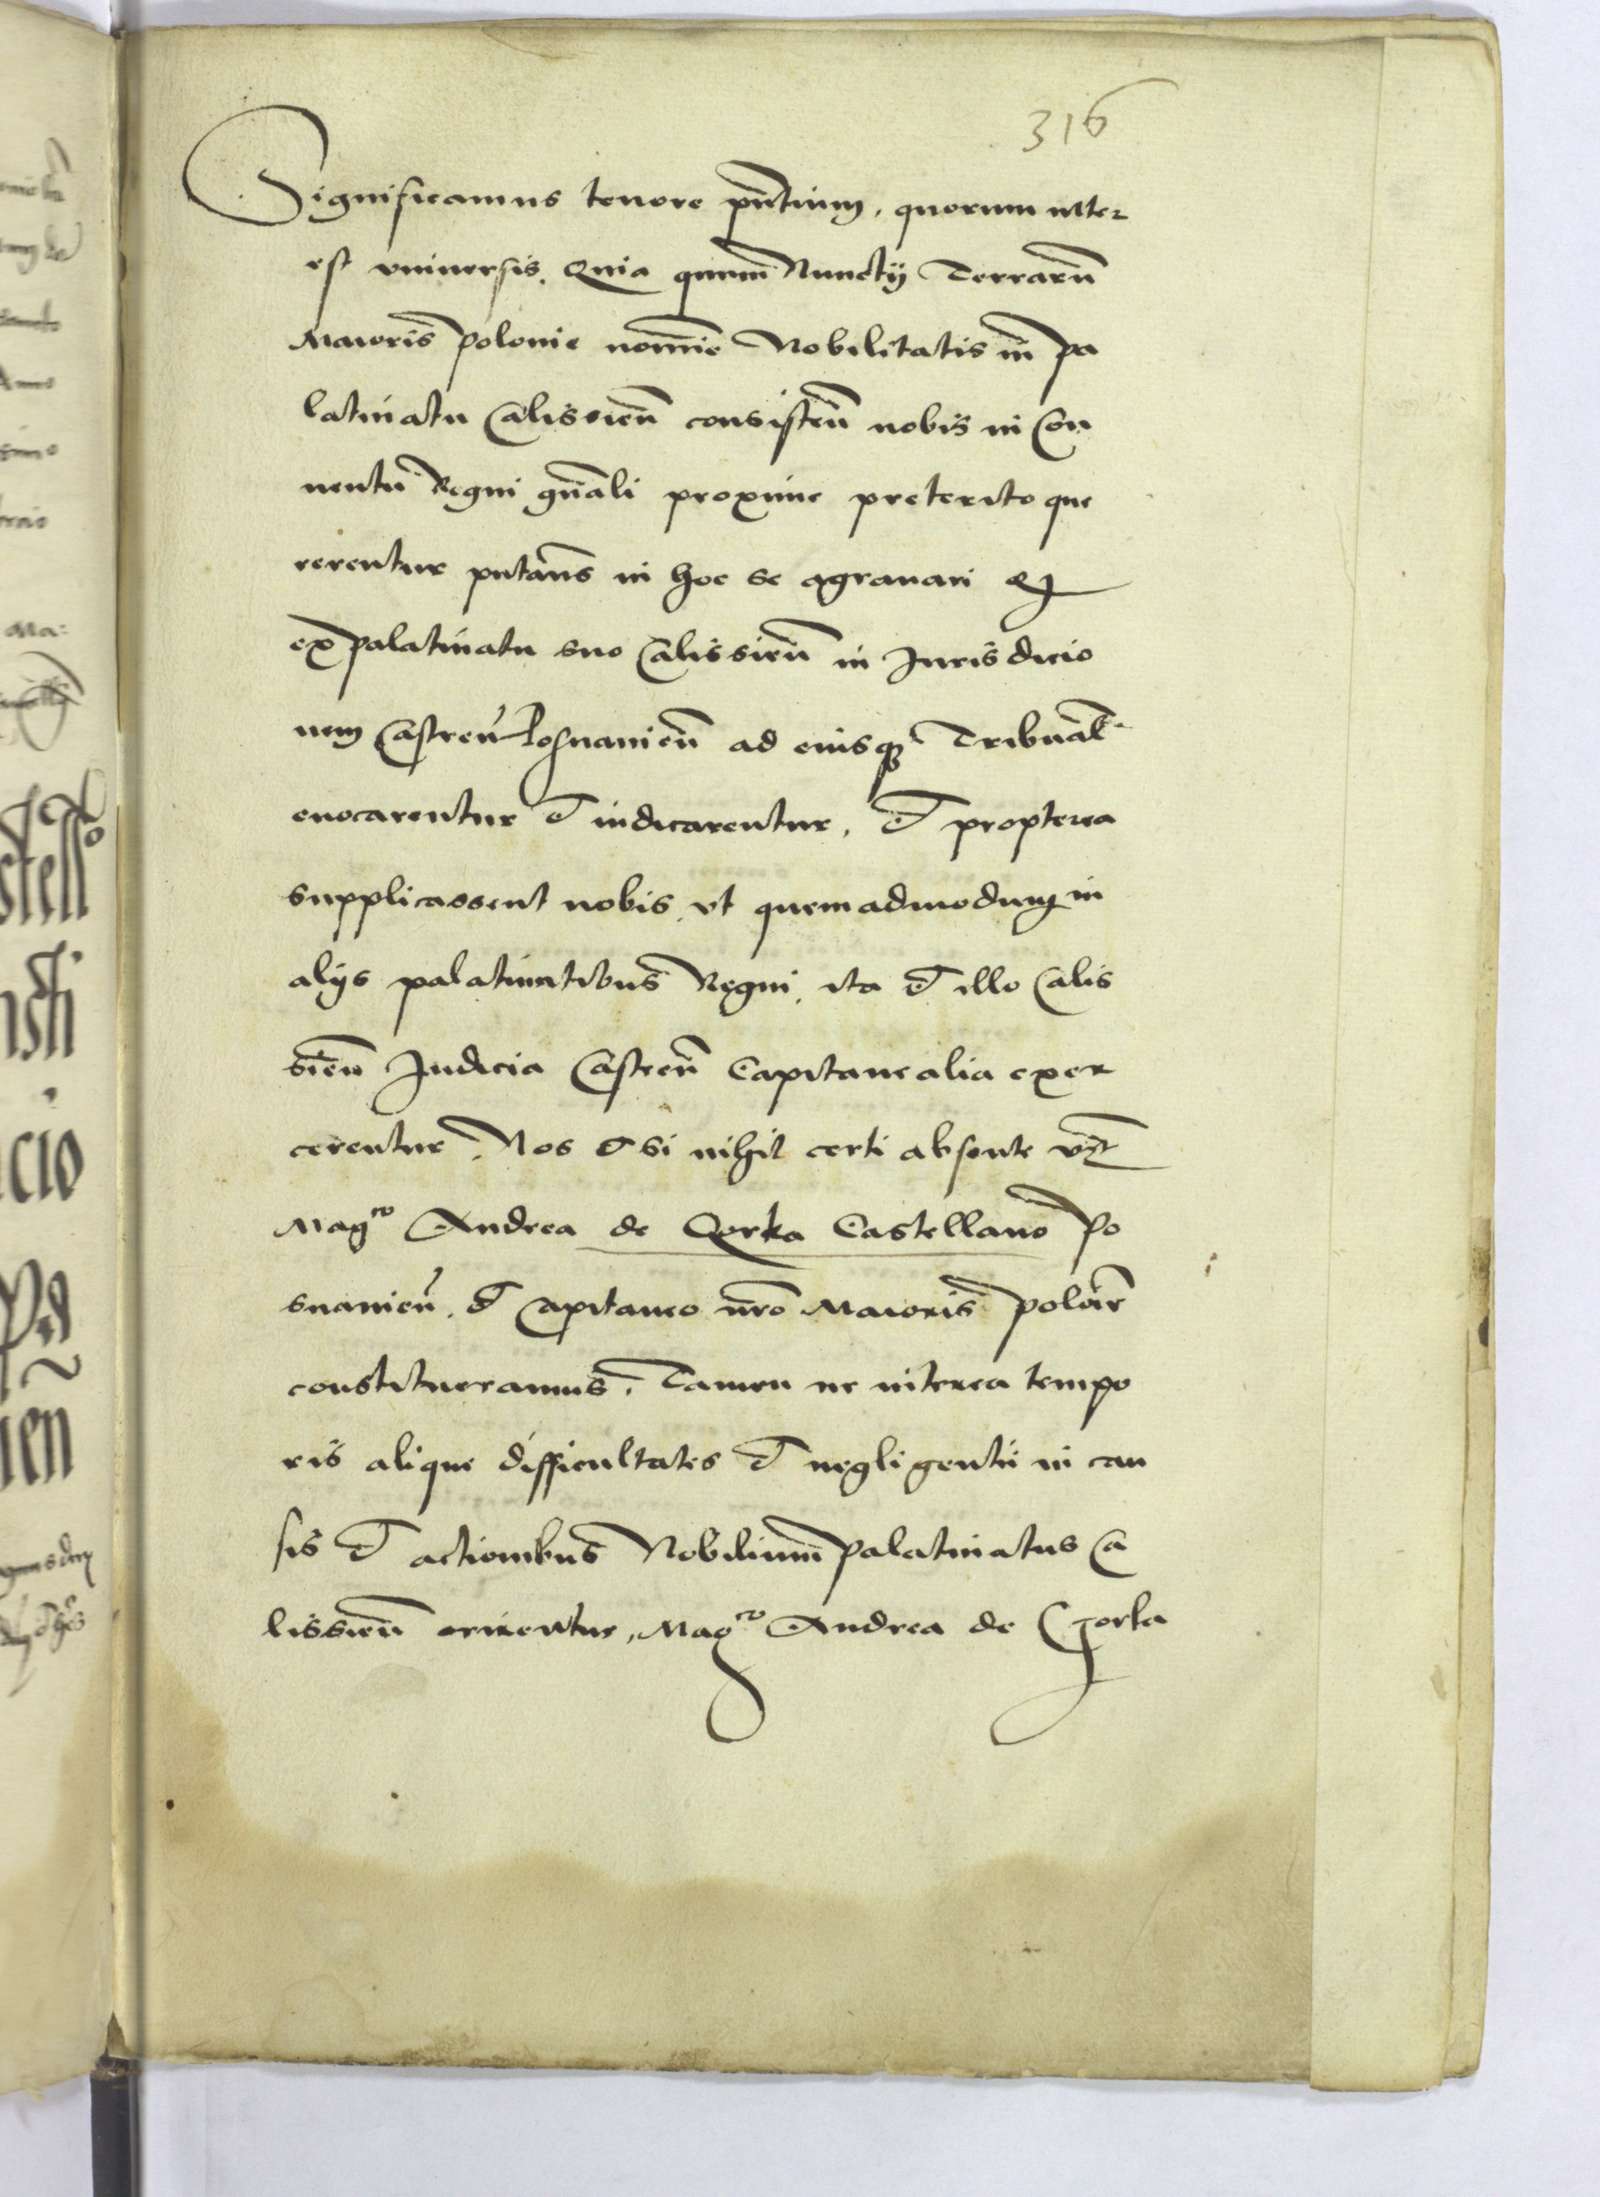 316
Significamus tenore pñtium, quorum inter
est vniuersis. Quia quum Nunctÿ Terrarũ
Maioris Polonie nomine Nobilitatis in Pa
latinatu Calissieñ consisteñ nobis in Con
uentu Regni gñali proxime preterito que
rerentur putans in hoc se agrauari q
ex Palatinatu suo Calissieñ in Jurisdicio
nem Castreñ Posnanieñ ad eiusqꝫ Tribunal
euocarentur et iudicarentur, et propterea
supplicassent nobis, vt quemadmodum in
alÿs palatinatibus Regni, ita et illo Calis
sieñ Judicia Castreñ Capitanealia exer
cerentur. Nos et si nihil certi absente
Magco Andrea de Gorka Castellano Po
snanieñ. et Capitaneo nro Maioris Poloñ
constitueramus. Tamen ne interea tempo
ris alique difficultates et negligentie in cau
sis et actionibus Nobilium Palatinatus Ca
lissieñ orirentur, Magco Andrea de Gorka